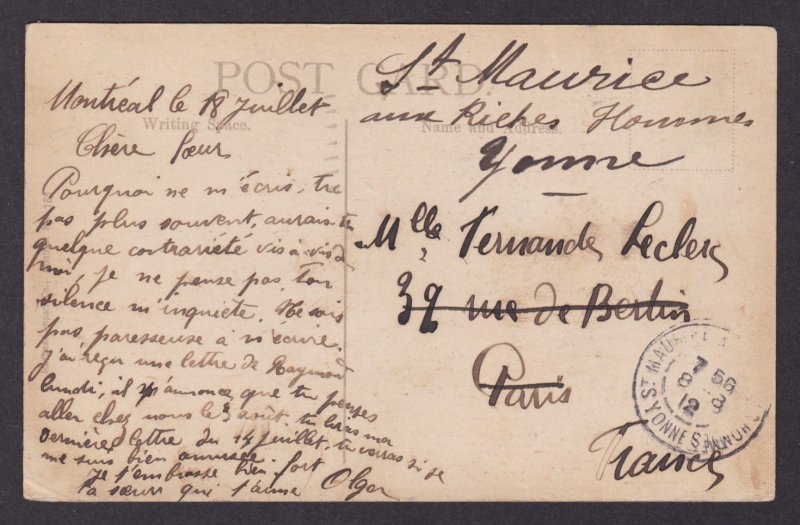 POST CARD.
Writing Space.
Name and Address.
Montréal le 18 Juillet
Chère Sœur
Pourquoi ne m'écris-tu
pas plus souvent, aurais-tu
quelque contrariété vis à vis de
moi, je ne pense pas, ton
silence m'inquiète, Ne sois
pas paresseuse à m'écrire.
J'ai reçu une lettre de Raymond
lundi, il m'annonce que tu penses
aller chez nous le 3 août, tu liras ma
dernière lettre du 14 Juillet, tu verras si je
me suis bien amusée.
Je t'embrasse bien fort
Ta sœur qui t'aime Olga
St Maurice
aux Riches Hommes
Yonne
Mlle Fernande Leclerc
39 rue de Berlin
Paris
France
ST MAURICE
7 55
8 - 8
12
YONNE